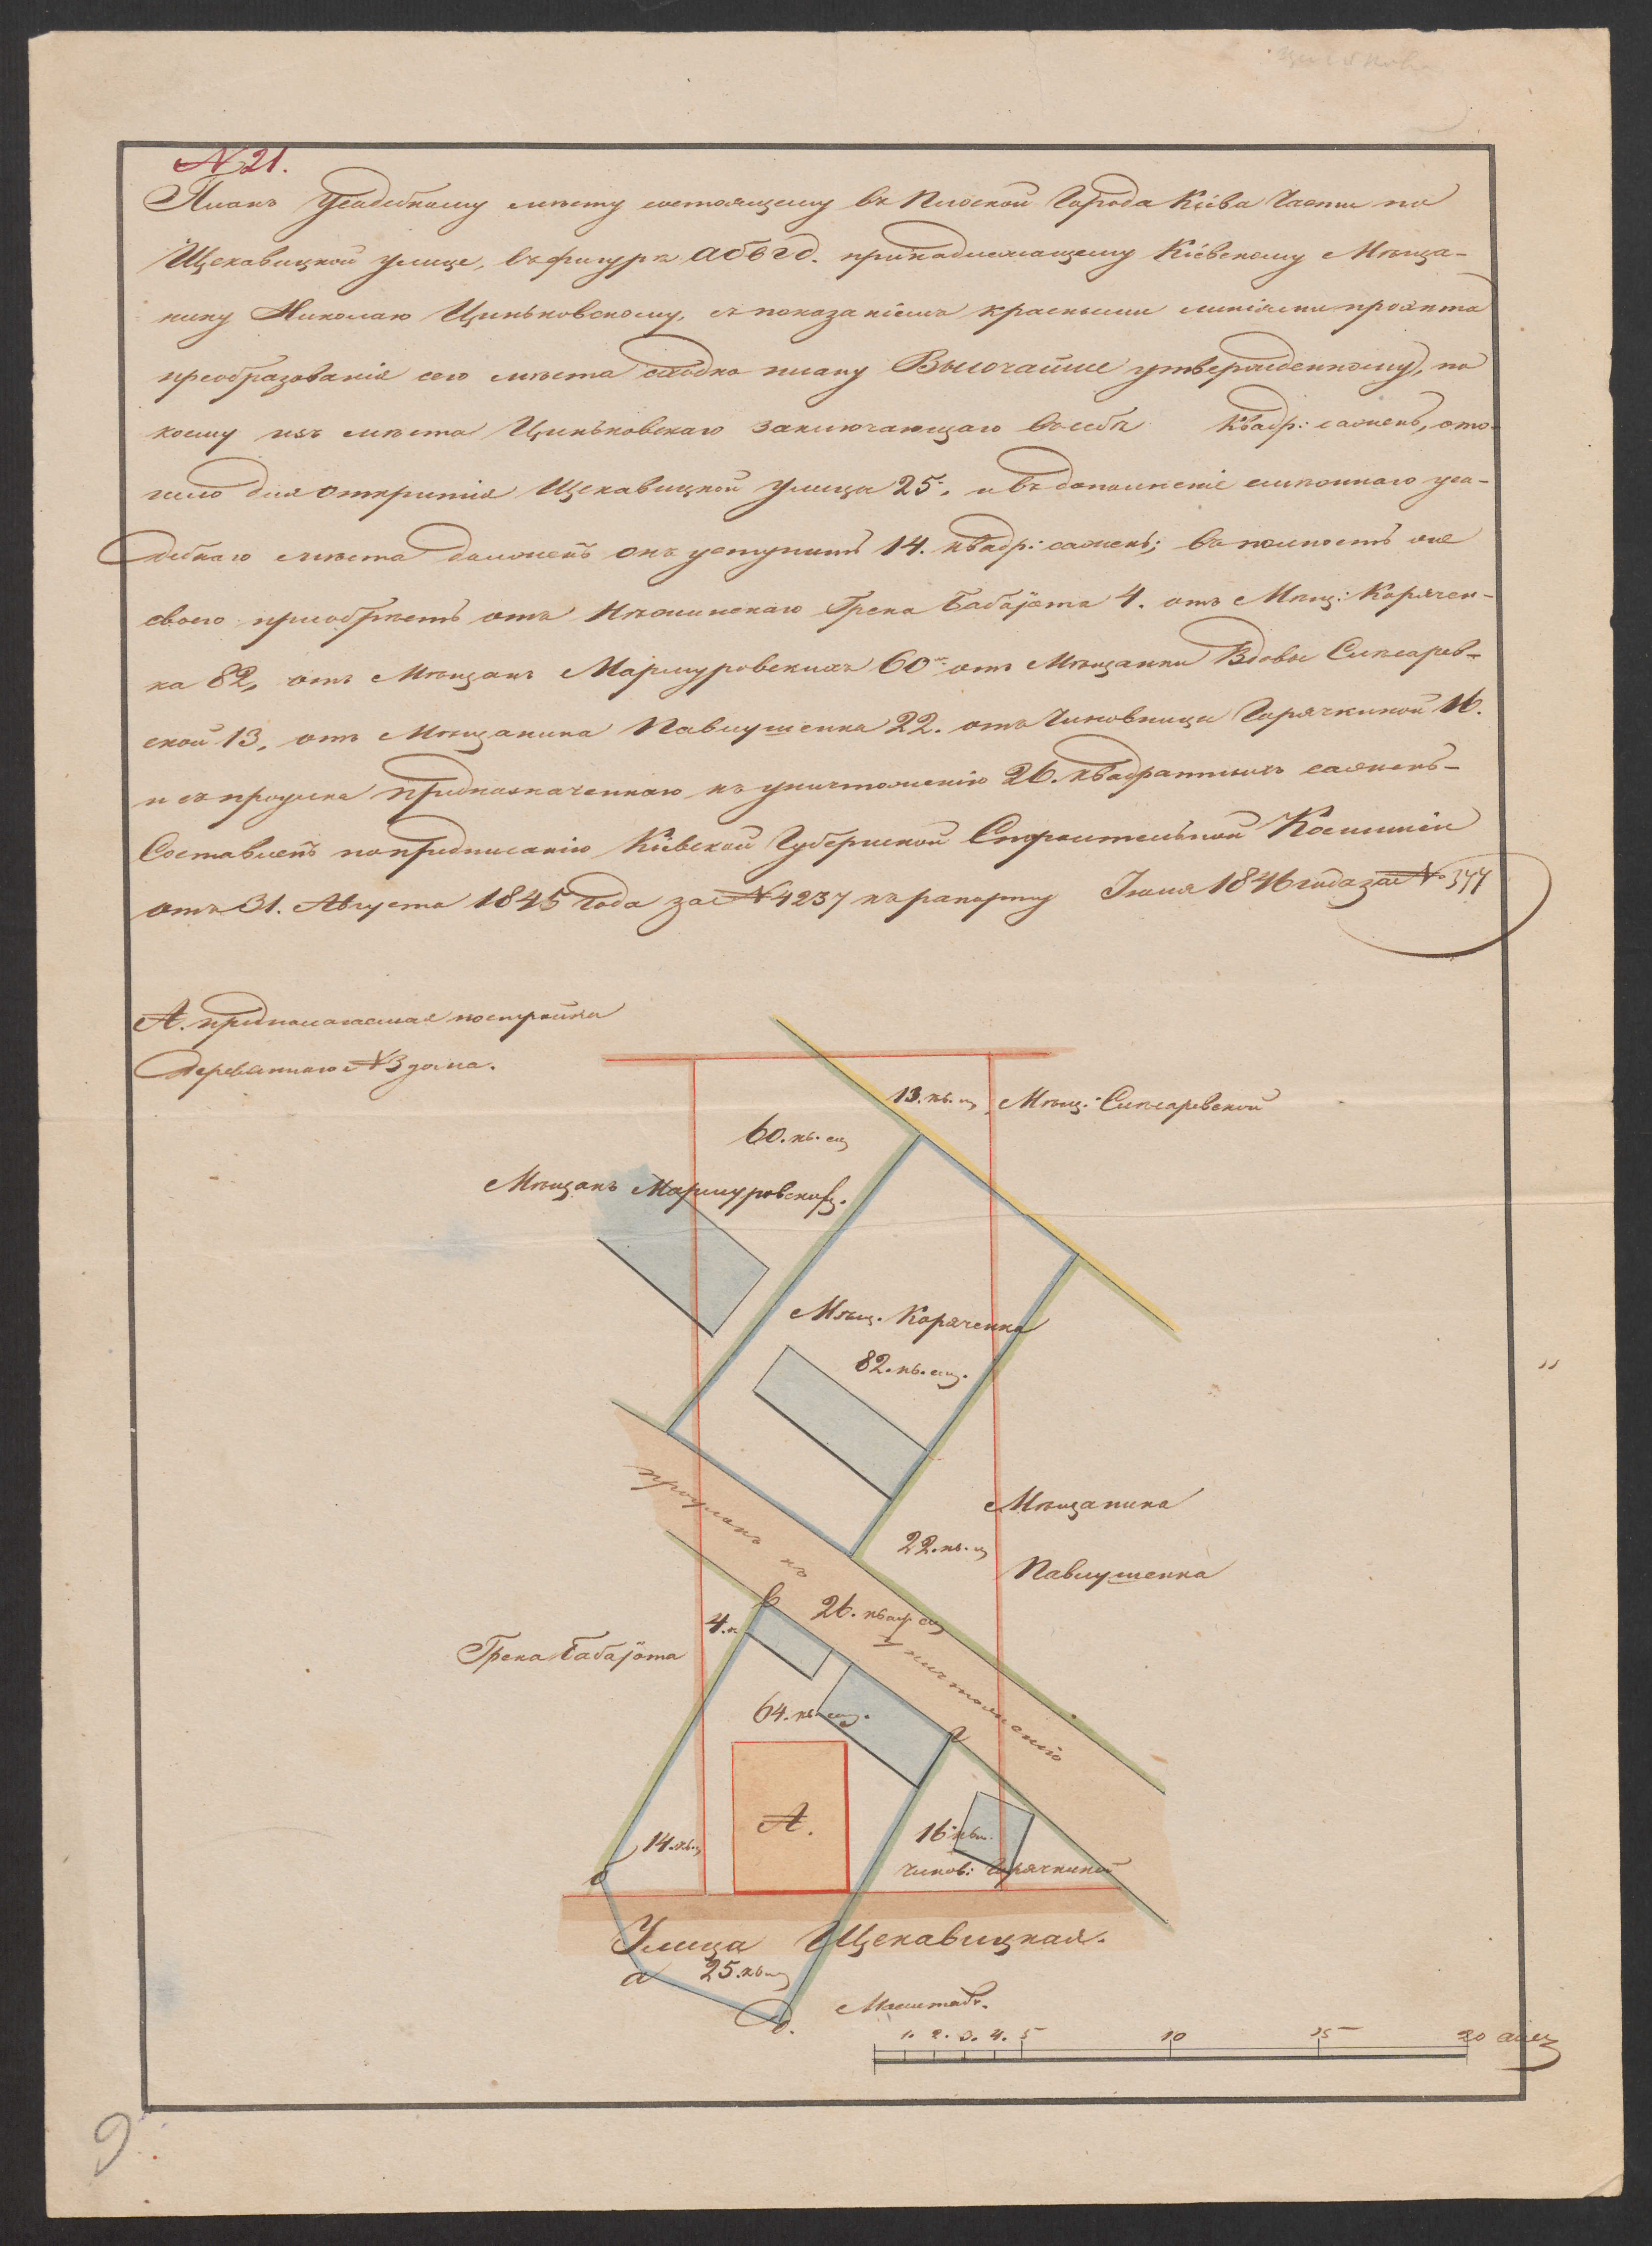 № 21.
Планъ Усадебному мѣсту состоящему въ Плоской Города Кіева Части по
Щекавицкой улице, въ фигурѣ абвгд. принадлежащему Кіевскому Мѣща-
нину Николаю Циньковскому, съ показаніемъ красными линіями проэкта
преобразованія сего мѣста сходно плану Высочайше утвержденному, по
коему изъ мѣста Циньковскаго заключающаго въ себѣ квадр: сажень, ото-
шло для открытія Щекавицкой улицы 25, и въ дополненіе смѣжнаго уса-
дебнаго мѣста долженъ онъ уступить 14. квадр: сажень; въ полность же
своего приобрѣсть отъ Нѣжинскаго Грека Бабаjота 4. отъ Мѣщ: Корячен-
ка 82, отъ Мѣщанъ Мармуровскихъ 60, отъ Мѣщанки Вдовы Слѣсарев-
ской 13, отъ Мѣщанина Павлушенка 22. отъ Чиновницы Горячкиной 16.
и съ проулка предназначеннаго къ уничтоженію 26. квадратныхъ сажень-
Составленъ по предписанію Кіевской Губернской Строительной Комиссіи
отъ 31. Августа 1845 Года за № 4237 къ рапорту Іюля 1846 года за № 377
А. предполагаемая постройка
деревяннаго № 3 дома.
13. кв. с. Мѣщ: Слѣсаревской
60. кв. саж
Мѣщанъ Мармуровских.
Мѣщ. Коряченка
82. кв. саж.
проулокъ къ уничтоженію
Мѣщанина
22. кв. с
Павлушенка
в
4. к
26. квад саж
Грека Бабаjота
64. кв саж.
г
А.
14. кв. с
16 кв.
чинов: Горячкиной
б
Улица Щекавицкая.
а 25. кв саж
д.
Масштабъ.
1. 2. 3. 4. 5 10 15 20 саж
9